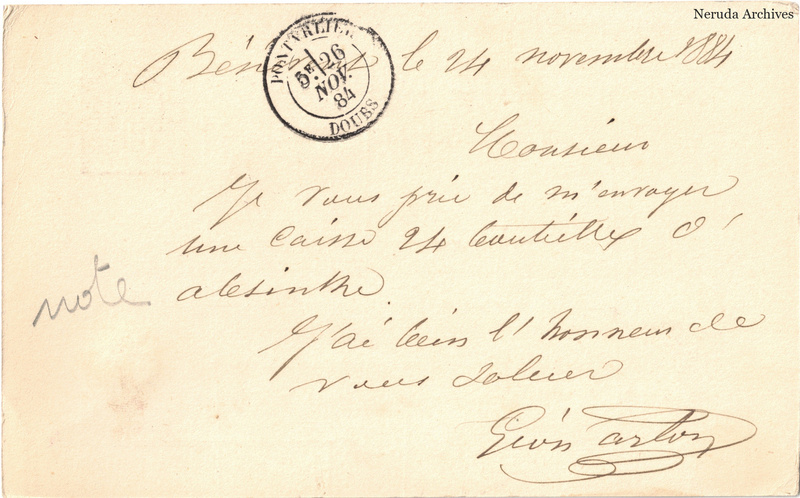 Neruda Archives
le 24 novembre 1884
PONTARLIER
5E 26
NOV.
84
DOUBS
Monsieur
Je vous prie de m'envoyer
une caisse 24 bouteilles d'
absinthe
note
J'ai bien l'honneur de
vous saluer